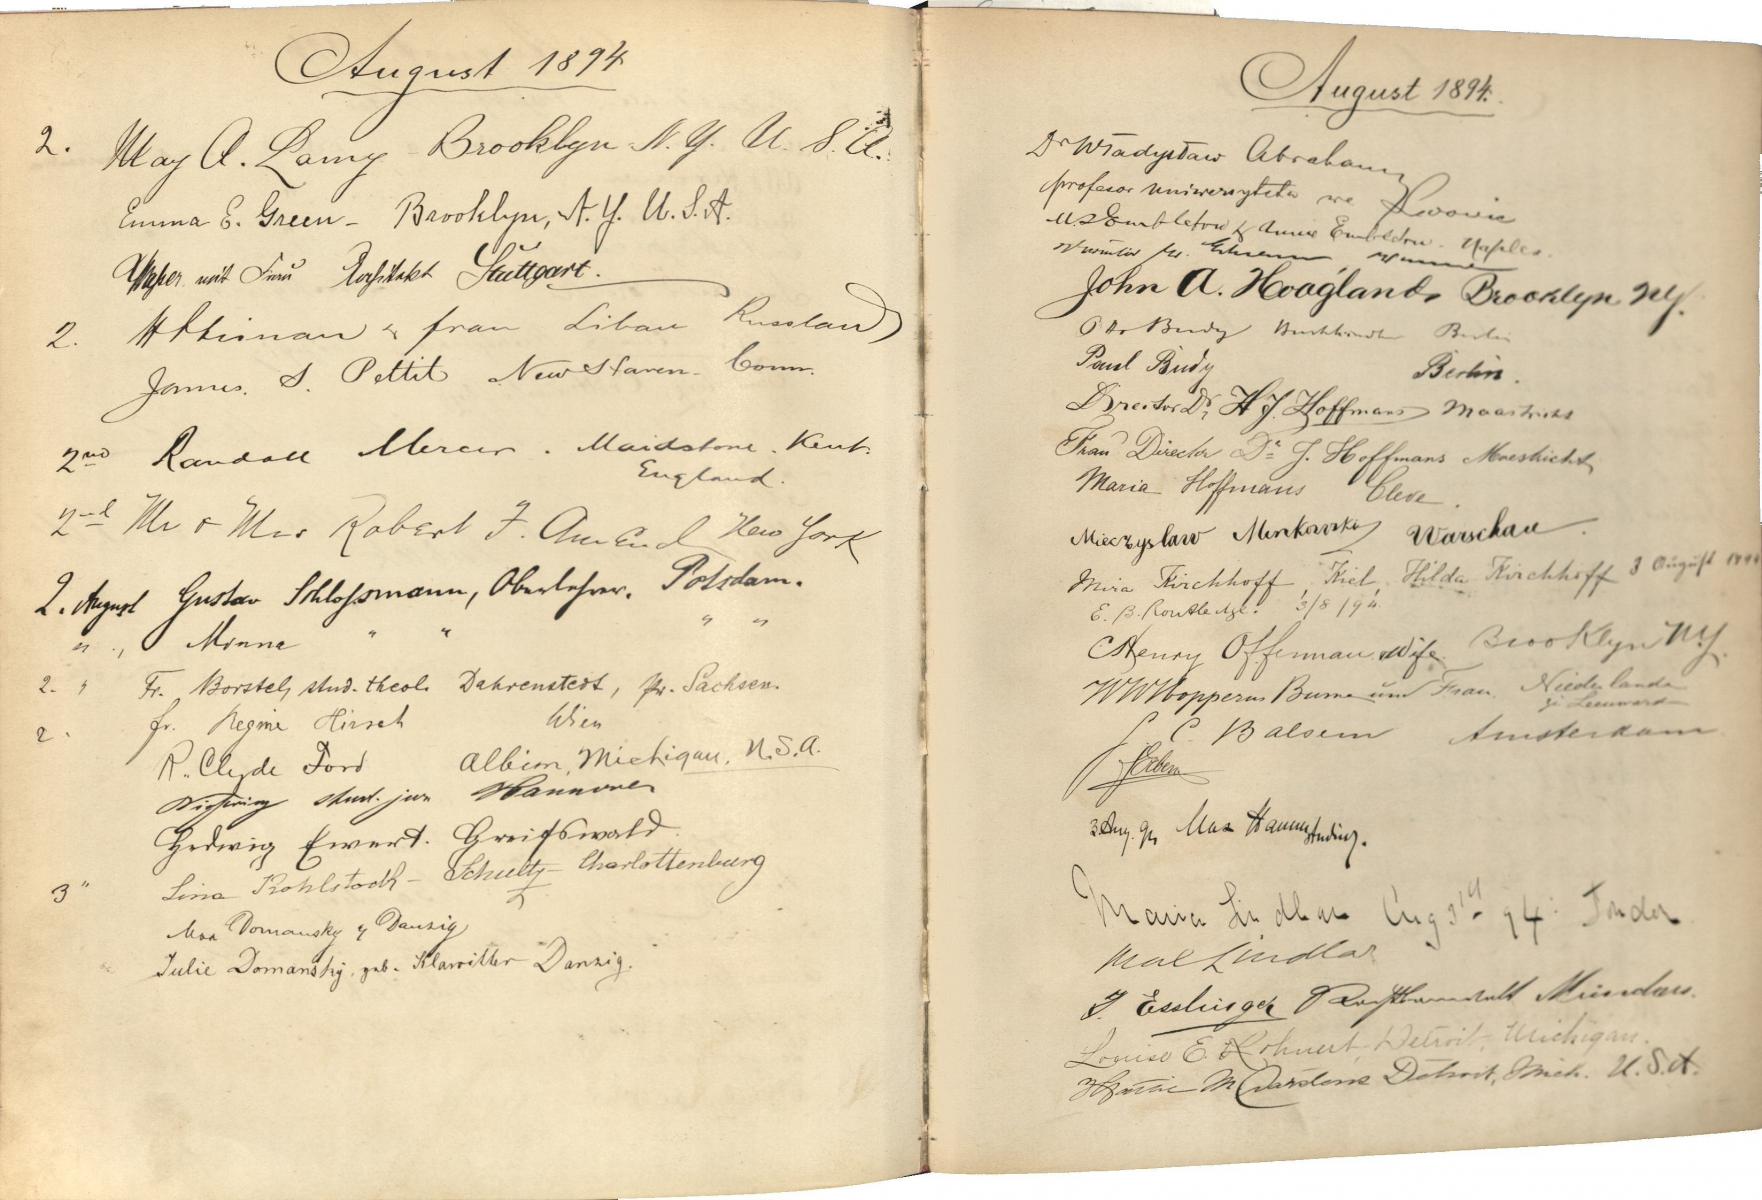 August 1894
2. May A. Lamy Brooklyn N. Y. U. S. A.
Emma E. Green - Brooklyn, N. Y. U. S. A.
mit Frau Architekt Stuttgart.
2. & frau Libau Russland
James. S. Pettit New Haven. Conn.
2nd Randall Mercer. Maidstone. Kent.
England.
2nd Mr & Mrs Robert F. Amend New York
2. August Gustav Schloßmann, Oberlehrer. Potsdam.
" " Minna " " " "
2. " Fr. Borstel, stud. theol. Dahrenstedt, Pr. Sachsen.
2. fr. Regine Hirsch Wien
R. Clyde Ford Albion, Michigan, U.S.A.
stud. jur. Hannover
Hedwig Ewert. Greifswald.
3" Lina Kohlstock - Schultz - Charlottenburg
Max Domansky Danzig
Julie Domansky, geb. Klawitter Danzig.
August 1894.
Dr Władysław Abraham
profesor uniwersytetu we Lwowie
Embleton & Annie Embleton. Naples.
John A. Hoagland, Brooklyn NY.
Otto Budy Berlin
Paul Budy Berlin.
Director Dr. H J. Hoffmans Maastricht
Frau Director Dr J. Hoffmans Maestricht
Maria Hoffmans Cleve.
Mieczyslaw Warschau.
Mira Kirchhoff, Kiel, Hilda Kirchhoff 3 August 1894
E. B. Routledge. 3/8/94.
C Henry Offerman & Wife. Brooklyn N.Y.
W W Hopperus Buma und Frau. Niederlande
zu Leeuward
C. Balsem Amsterdam
3. Aug. 94 Max
Maria Lindlar Aug 3rd 94.
Lindlar
J. Esslinger Rechtsanwalt München.
Louise E. Kohnert, Detroit, Michigan.
M Carstens Detroit, Mich. U.S.A.